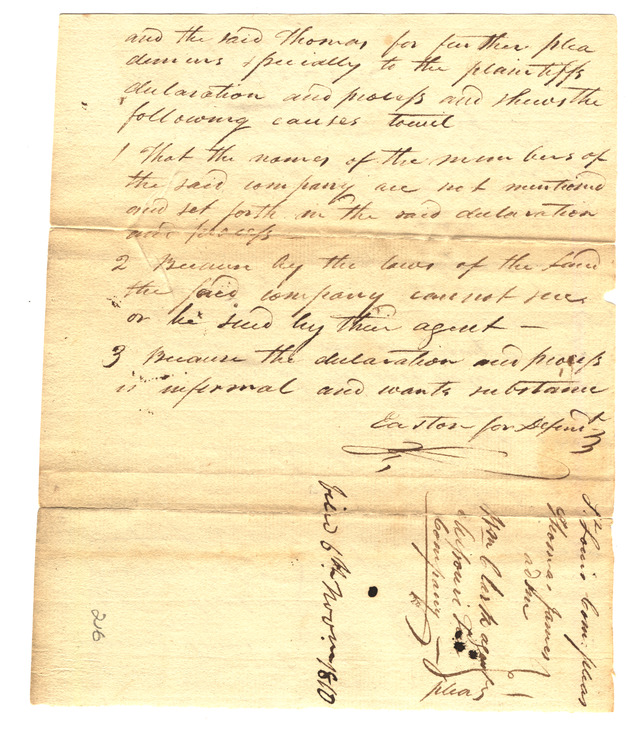 and the said Thomas for further plea
demurs specially to the plaintiffs
declaration and process and shews the
following causes towit
1 That the names of the members of
the said company are not mentioned
and set forth in the said declaration
and process —
2 Because by the laws of the land
the said company cannot sue
or be sued by their agent —
3 Because the declaration and process
is informal and wants substance
Easton for Defend
St Louis Com. pleas
Thomas James
ads
Wm Clark agent
Missouri Fur
Company
plea
filed 6th Novm 1810
216